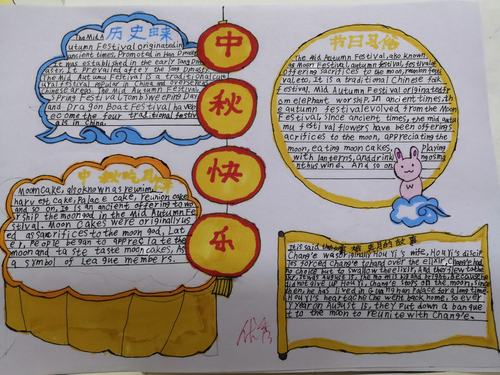 历史由来
The Mid
Autumn Festival originated in
ancient times, Promoted in Han Dynasty
It was established in the early Tang Dyn
asty. It Prevailed after the Song Dynasty
The Mid Autumn Festival is a traditional
festival popular in China and
Chinese areas. The Mid Autumn Festival
Spring Festival, Tomb Sweeping Day
and Dragon Boat Festival have
become the four traditional festiv
als in China.
中
秋
快
乐
节日习俗
The Mid Autumn Festival, also known
as Moon Festival,
offering sacrifices to the moon, reunion fes
tival etc. It is a traditional Chinese folk
festival. Mid Autumn Festival originated fr
om worship. In ancient times. Th
e autumn festival evolved from the Moon
Festival, since ancient times, the mid aut
umn festival flowers have been offering
sacrifices to the moon, appreciating the
moon, eating moon cakes, Playing
with lanterns, and drink
thus wine. And so on
中秋吃月饼
Moon Cake, also known as reunion
harvest Cake, Palace cake, reunion cake
and so on, It is an ancient offering to wor
ship the moon god in the Mid Autumn Fe
stival. Moon Cakes were originally us
ed as sacrifice to the moon god, Lat
er, People began to appreciate the
moon and taste moon cakes, As
a symbol of league members.
嫦娥奔月的故事
It is said that
Chang'e was originally HouYi's wife, HouYi's discip
les forced Chang'e to hand over the elixir, Chang'e had
no choice but to swallow the elixir, And flew to the
did not give up HouYi, Chang'e stops on the moon, Since
then, he has lived in Guanghan Palace for a long time
HouYi's heartache he went back home, so ever
y year on August 15, they put down a banque
t to the moon to reunite with Chang'e.